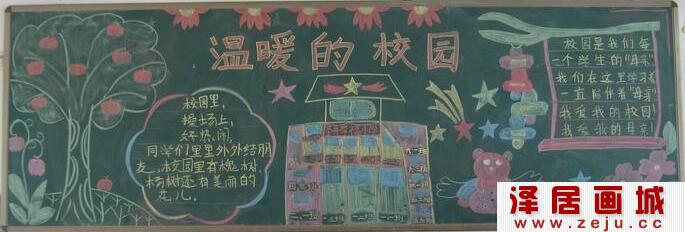 温暖的校园
校园里，
操场上，
好热闹，
同学们里里外外结朋
友，校园里有槐树，
杨树还有美丽的
花儿。
校园是我们每
一个学生的"母亲"
我们在这里学习着
一直陪伴着"母亲"
我爱我的校园！
我爱我的母亲！
泽居画城
www.zeju.cc